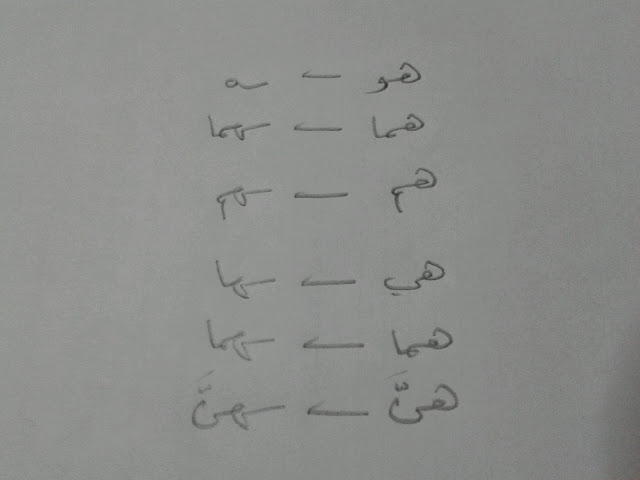 هو — ه
هما — هما
هم — هم
هي — ها
هما — هما
هنَّ — هنَّ